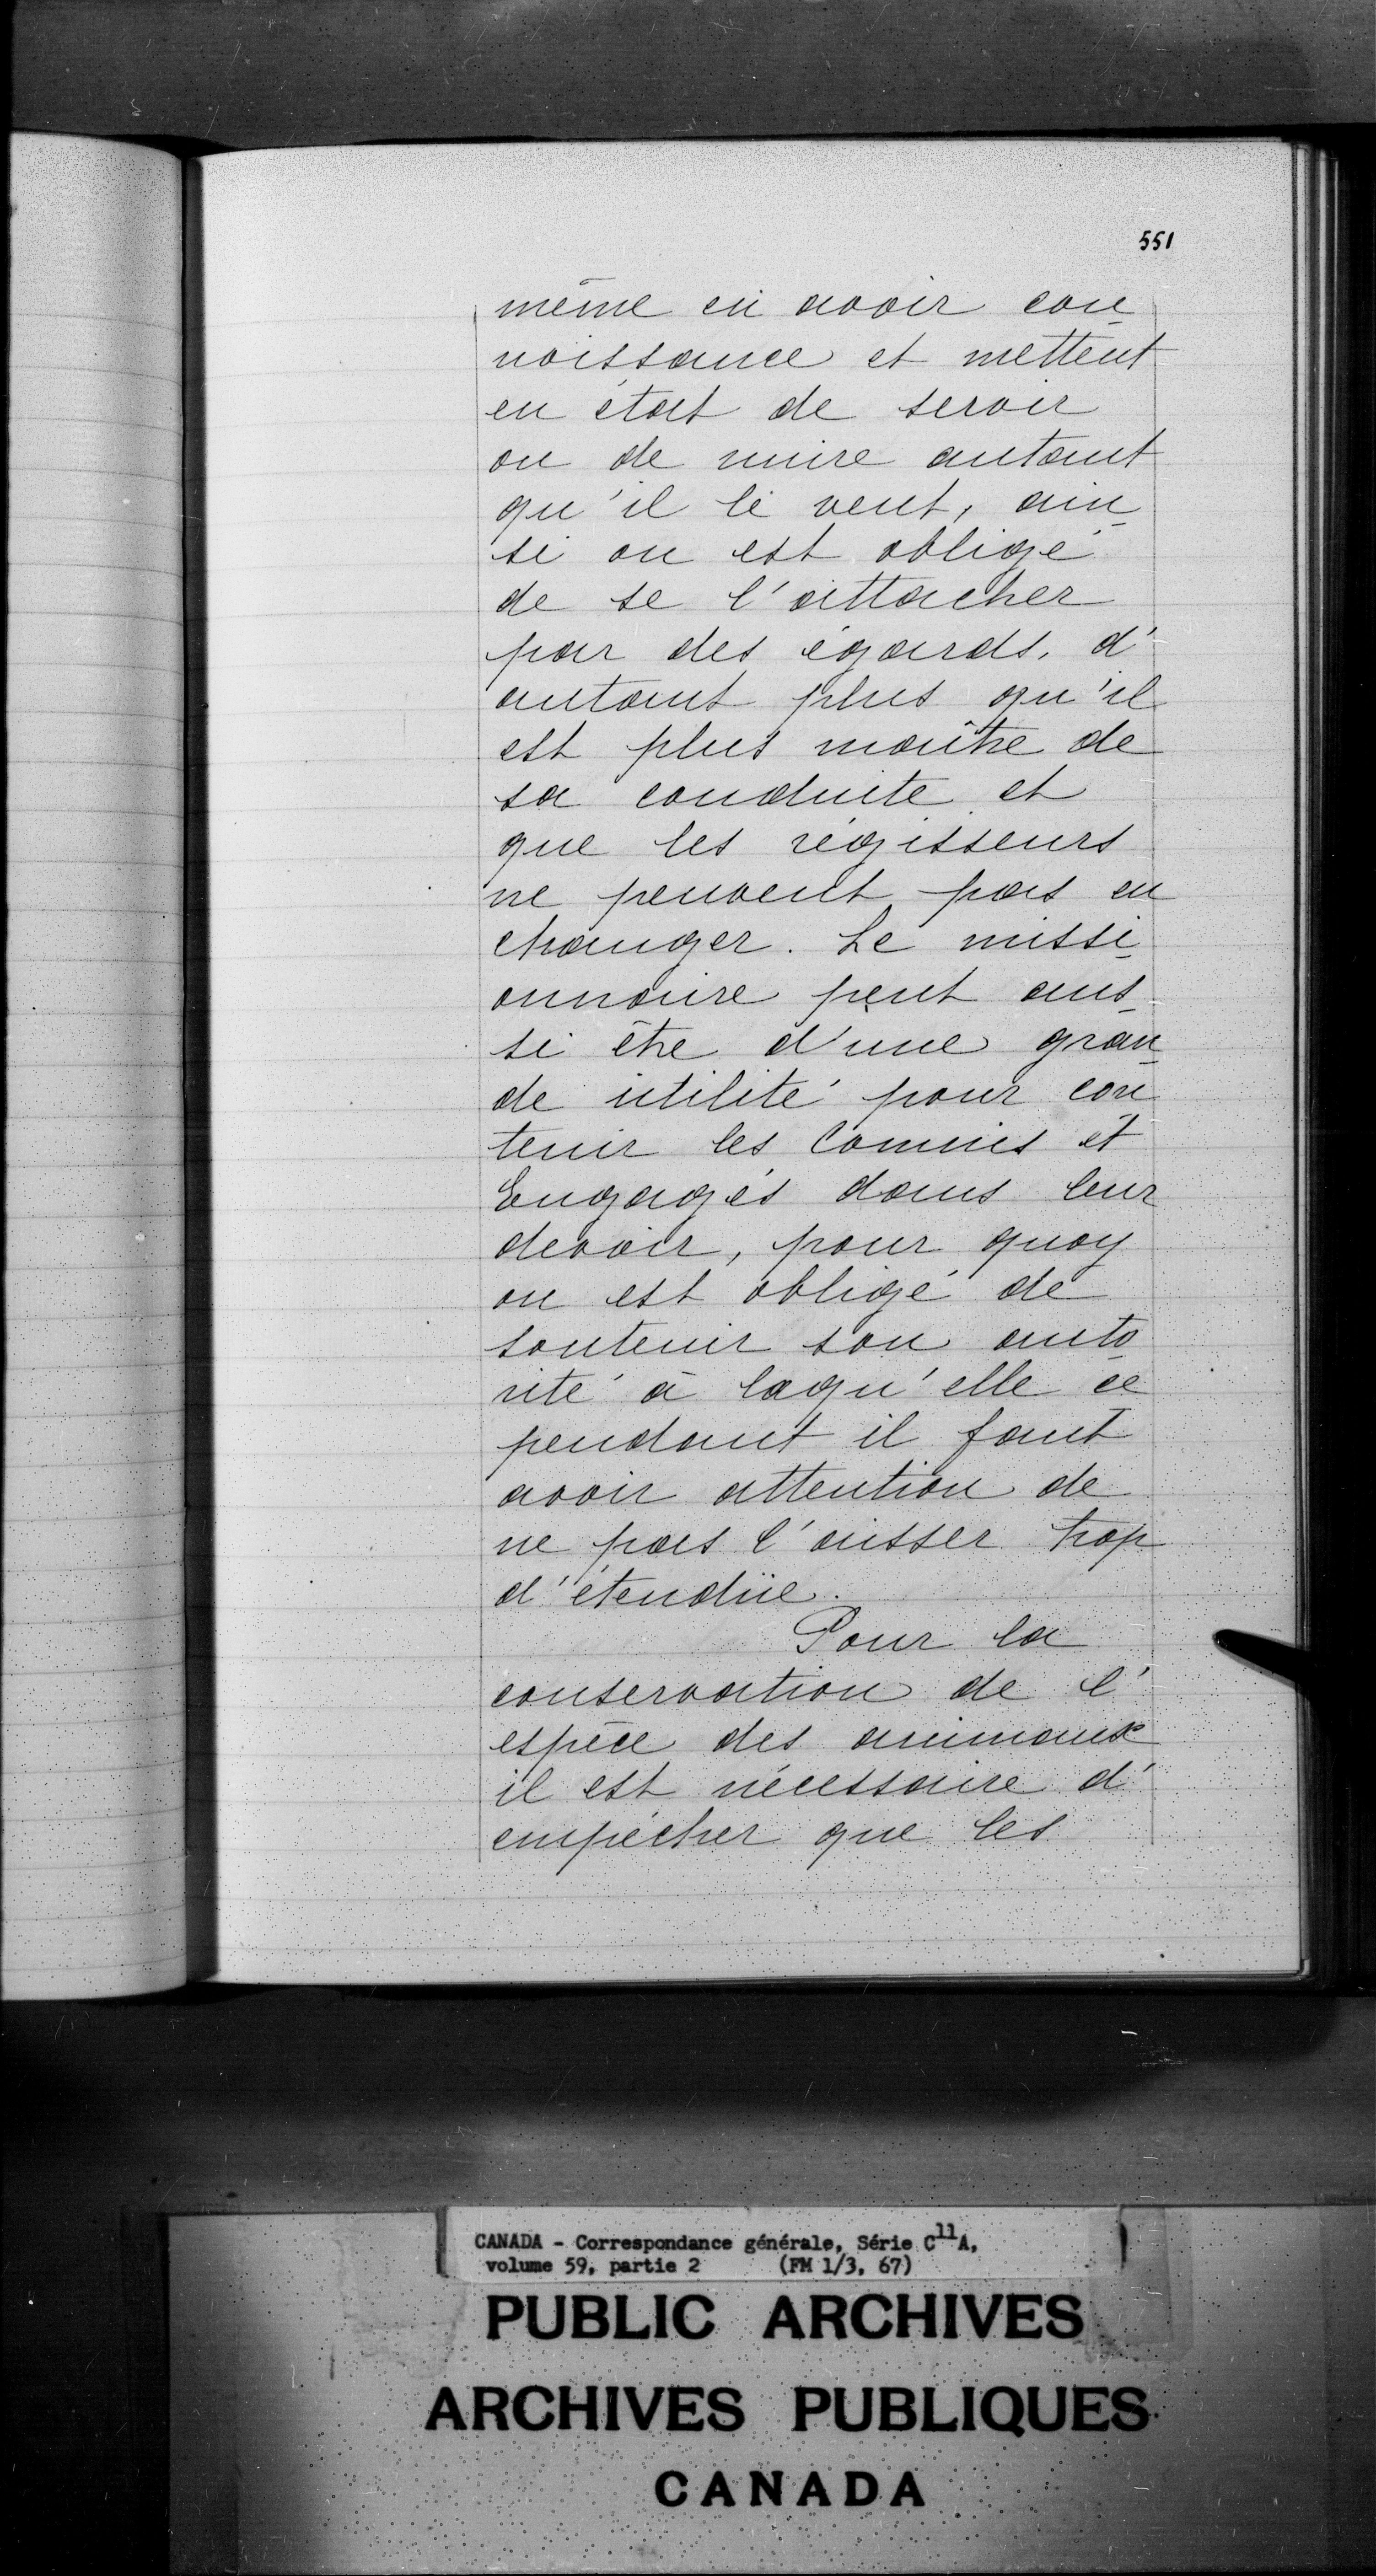 551
même en avoir con-
noissance et mettent
en état de servir
ou de nuire autant
qu'il le veut, ain-
si on est obligé
de se l'attacher
par des égards, d'
autant plus qu'il
est plus maître de
sa conduite et
que les régisseurs
ne peuvent pas en
changer. Le missi-
onnaire peut aus-
si être d'une gran-
de utilité pour con-
tenir les Commis et
Engagés dans leur
devoir, pour quoy
on est obligé de
soutenir son auto-
rité à laqu'elle ce
pendant il faut
avoir attention de
ne pas l'aisser trop
d'étendüe.
Pour la
conservation de l'
espèce des animaux
il est nécessaire d'
empêcher que les
CANADA - Correspondance générale, Série C11A,
volume 59, partie 2 (FM 1/3, 67)
PUBLIC ARCHIVES
ARCHIVES PUBLIQUES
CANADA